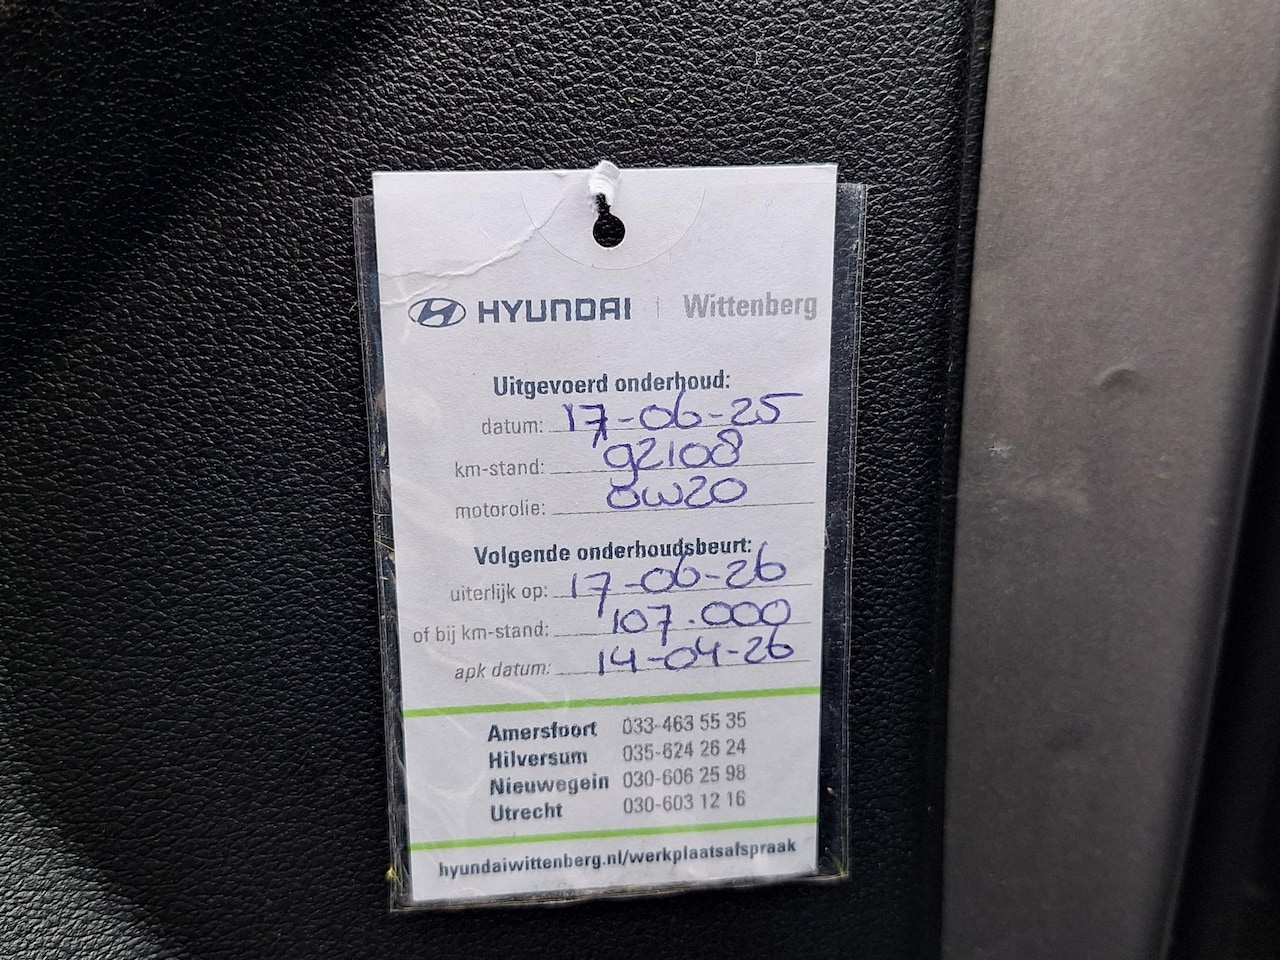 HYUNDAI | Wittenberg
Uitgevoerd onderhoud:
datum: 17-06-25
km-stand: 92108
motorolie: 0W20
Volgende onderhoudsbeurt:
uiterlijk op: 17-06-26
of bij km-stand: 107.000
apk datum: 14-04-26
Amersfoort 033-463 55 35
Hilversum 035-624 26 24
Nieuwegein 030-606 25 98
Utrecht 030-603 12 16
hyundaiwittenberg.nl/werkplaatsafspraak